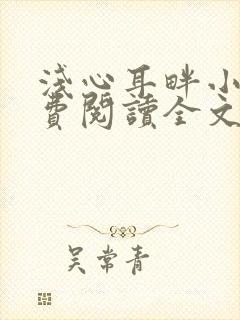 淺心耳畔小
費閱讀全文
吳常青